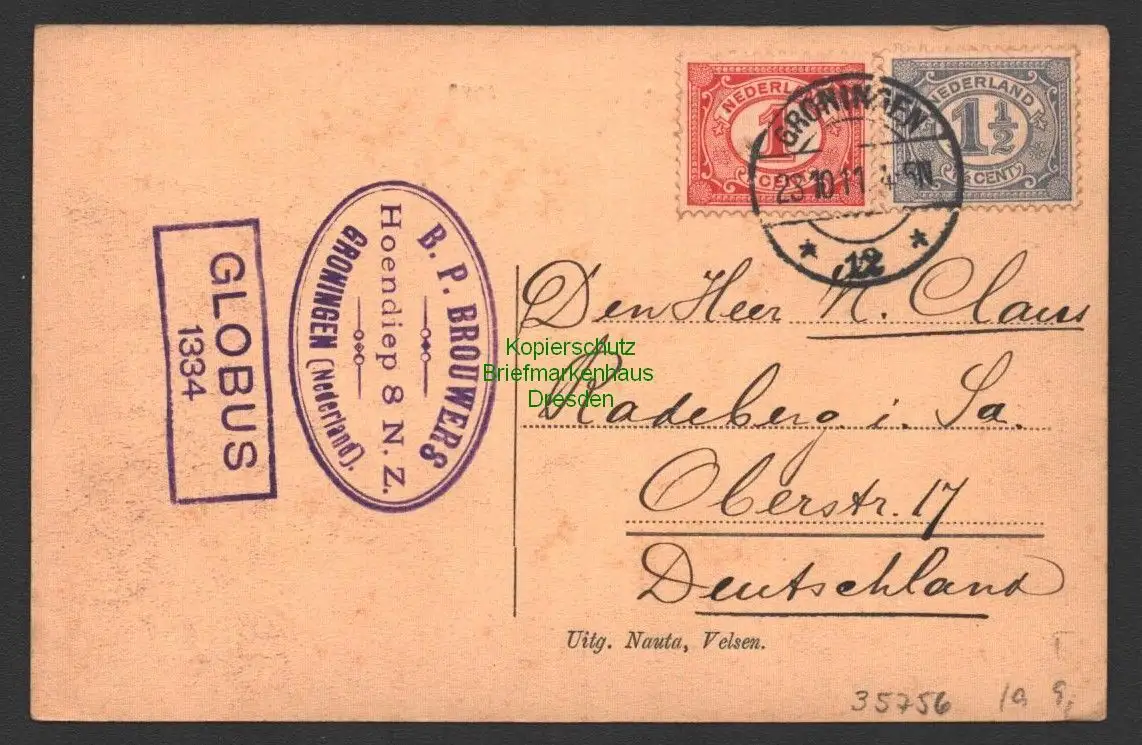 NEDERLAND
1
CENT
NEDERLAND
1½
CENT
GRONINGEN
23 10 11 4-5N
12
GLOBUS
1334
B. P. BROUWERS
Hoendiep 8 N. Z.
GRONINGEN (Nederland).
Den Heer N. Claus
Radeberg i. Sa.
Oberstr. 17
Deutschland
Kopierschutz
Briefmarkenhaus
Dresden
Uitg. Nauta, Velsen.
35756